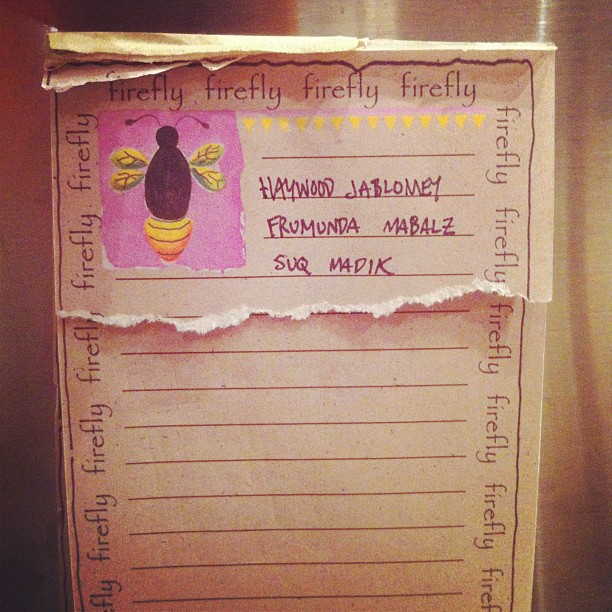 firefly firefly firefly firefly
HAYWOOD JABLOMEY
FRUMUNDA MABALZ
SUQ MADIK
firefly
firefly
firefly
firefly
firefly
firefly
firefly
firefly
firefly
firefly
firefly